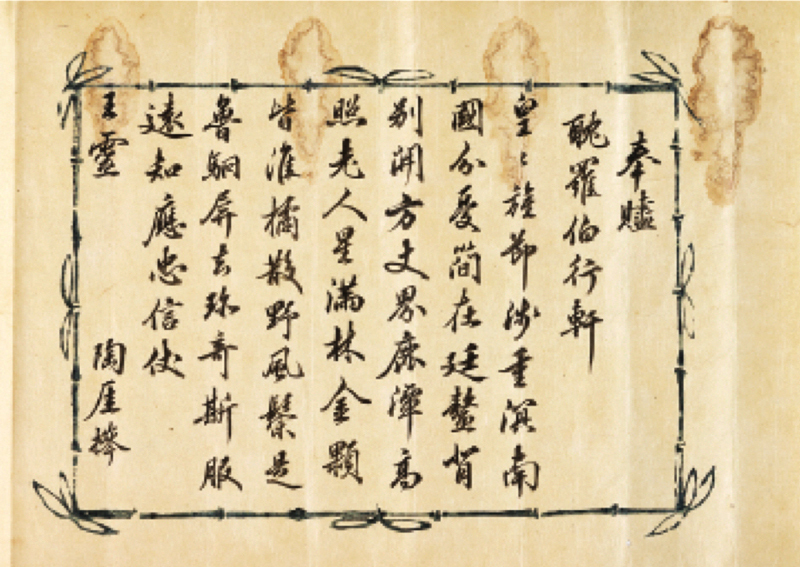 奉贐
耽羅伯行軒
皇〻旌節涉重溟南
國分憂簡在廷鰲背
別開方丈界鹿潭高
照老人星滿林金顆
皆淮橘散野風鬃是
魯駉屛去珎奇斯服
遠知應忠信仗
王靈 陶厓